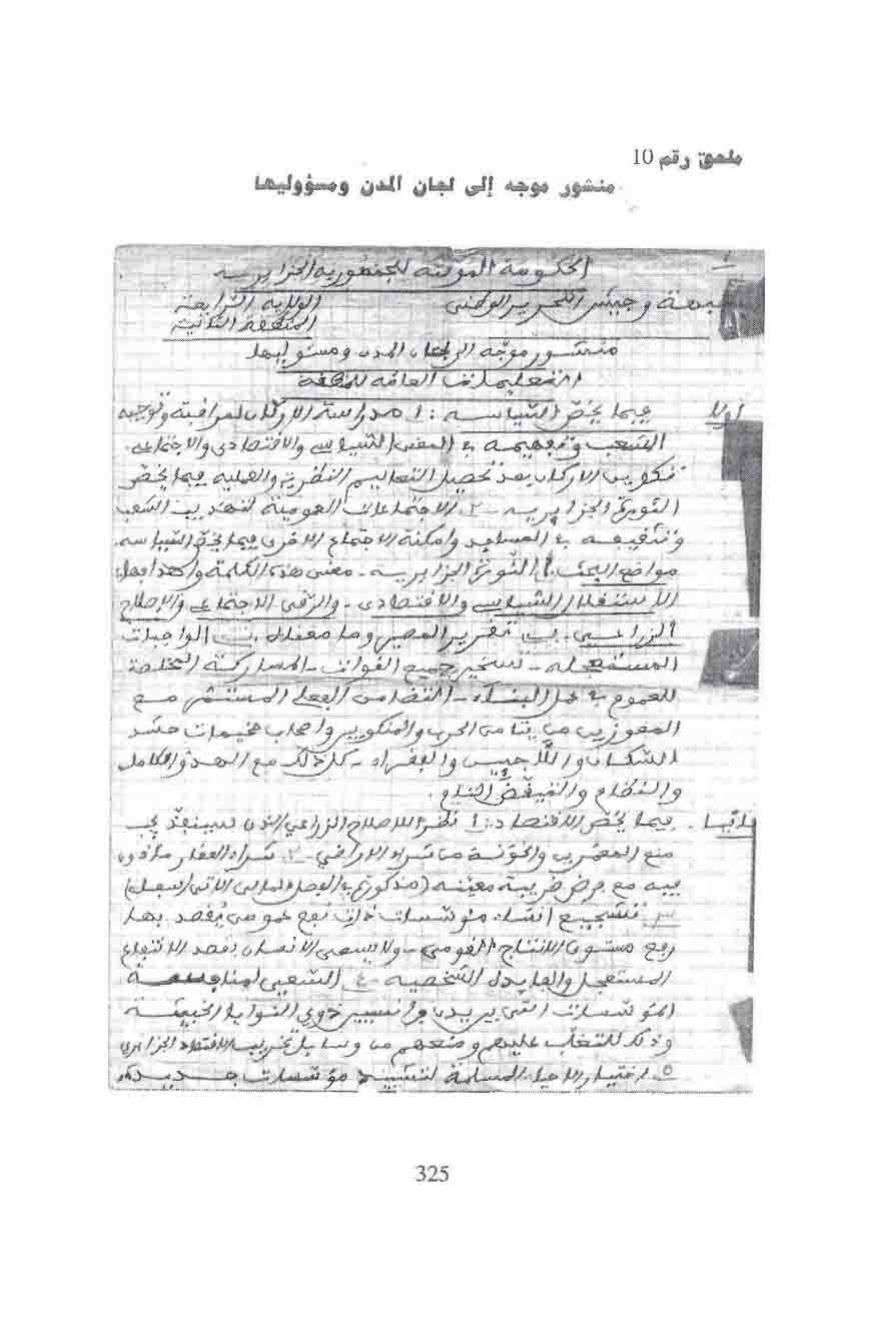 ملحق رقم 10
منشور موجه إلى لجان المدن ومسؤوليها
الحكومة المؤقتة للجمهورية الجزايرية
جبهة وجيش التحرير الوطني الولاية الرابعة
المنطقة الثانية
منشور موجّه الى لجان المدن ومسئوليها
التعليمات العامة للمنطقة
أولا فيما يخصّ السياسة : 1 مدارسة الاركان لمراقبة وتوجيه
الشعب وتفهيمه في المعنى السياسي والاقتصادى والاجتماعى.
تكوين الاركان بعد تحصيل التعاليم النظرية والعملية فيما يخصّ
الثورة الجزايرية - 2. الاجتماعات العمومية لتهذيب الشعب
وتثقيفه في المساجد وامكنة الاجتماع الاخرى فيما يخصّ السياسة.
مواضع البحث. أ) الثورة الجزايرية - معنى هذه الكلمة واهدافها
الاستقلال السياسي والاقتصادى - والرّقى الاجتماعي والاصلاح
الزراعي - ب تقرير المصير وما معناه. ت الواجبات
المستعجلة - تسخير جميع القوات - المشاركة المخلصة
للعموم في حل البناء - التضامن الفعلي المستمر مع
المعوزين من يتامى الحرب والمنكوبين واصحاب مخيمات حشد
السكان واللاجيين والفقراء - كل ذلك مع الهدو الكامل
والنظام والتيقّظ التام.
ثانيا. فيما يخصّ الاقتصاد: 1 نظرا للاصلاح الزراعي الذى سينفّذ يجب
منع المعمّرين والخونة من شراء الاراضي - 2. شراء العقار مأذون
فيه مع فرض ضريبة معيّنة (مذكورة في الفصل المالي الاتي اسفله)
3. تشجيع انشاء مؤسّسات ذات نفع عمومى يُقصد بها
رفع مستوى الانتاج القومي - ولا يسعى الانسان بقصد الانتفاع
المستعجل والفايدة الشخصية - 4. السّعي لمنافسة
المؤسّسات التي يريد تأسيسها ذوي النوايا الخبيثة
وذلك للتغلّب عليهم ومنعهم من وسايل تخريب الاقتصاد الجزايري
5. اختيار الاحياء المسلمة لتشييد مؤسّسات جديدة
325